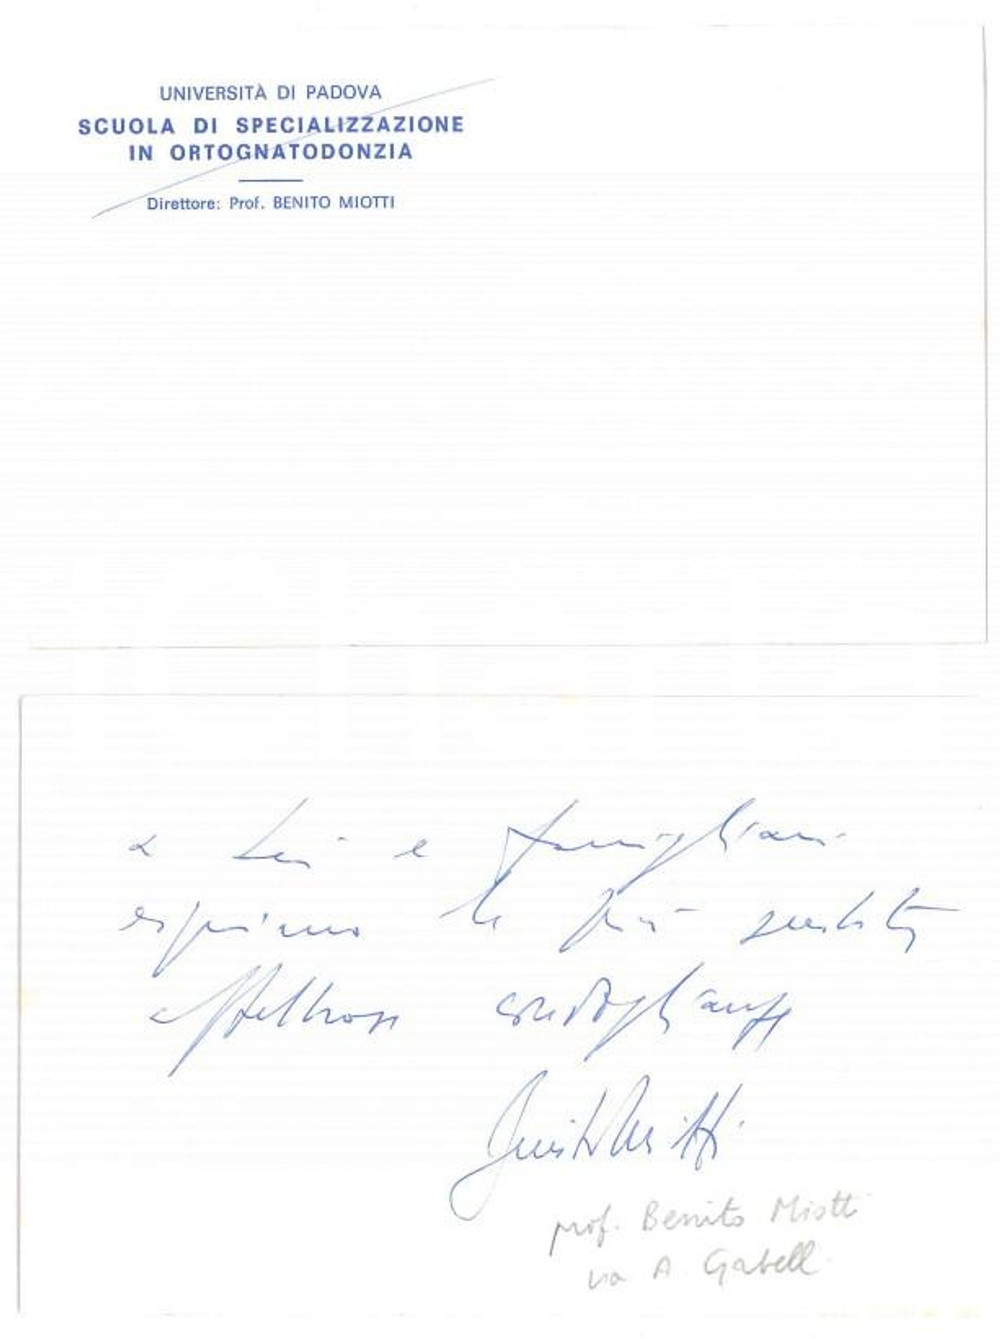 UNIVERSITÀ DI PADOVA
SCUOLA DI SPECIALIZZAZIONE
IN ORTOGNATODONZIA
Direttore: Prof. BENITO MIOTTI
a Lei e famigliari
esprimo le più sentite
affettuose condoglianze
Benito Miotti
prof. Benito Miotti
via A. Gabell